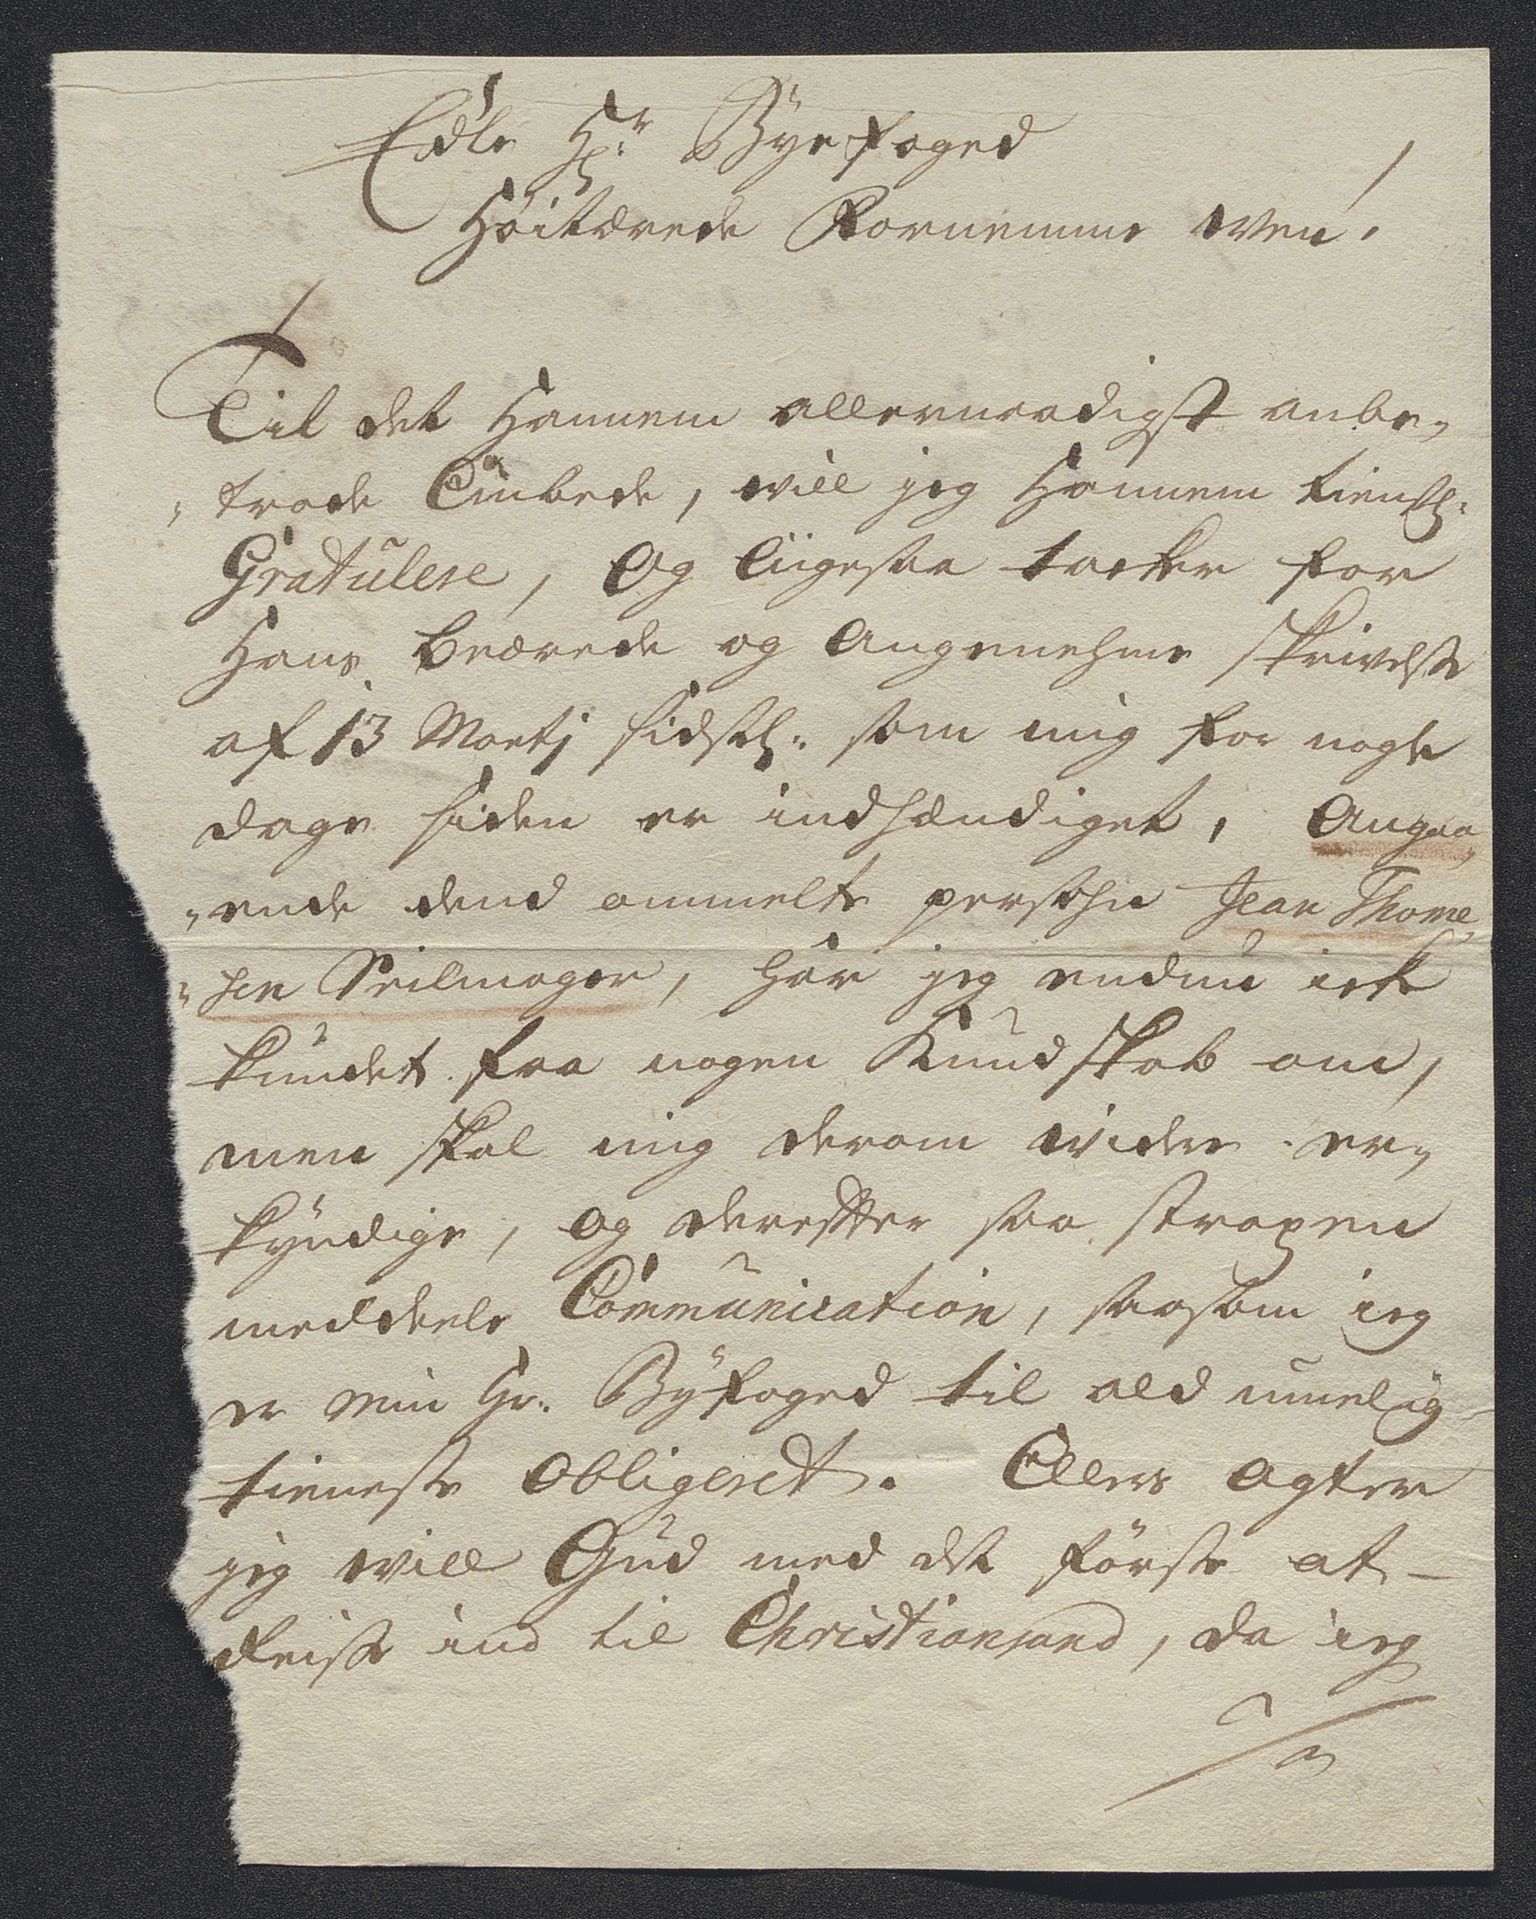 Edle Hr. Byefoged
Høitærede Fornemme Ven!
Til det Hannem allernaadigst anbe-
-trode Embede, will jeg Hannem tienstl:
Gratulere, Og ligesaa tacker for
Hans beærede og Angenehme skrivelse
af 13 Martj sidstl: som mig for nogle
dage siden er indhændiget, Angaa-
-ende dend ommelte persohn Jean Thome-
-sen Seilmager, har jeg endnu icke
kundet faa nogen Kundskab om,
men skal mig derom videre er-
kyndige, og derefter saa straxen
meddeele Communication, saasom jeg
er Min Hr. Byfoged til ald muelig
tieneste Obligeret. Ellers Agter
jeg will Gud med det første at
Reise ind til Christiansand, da jeg